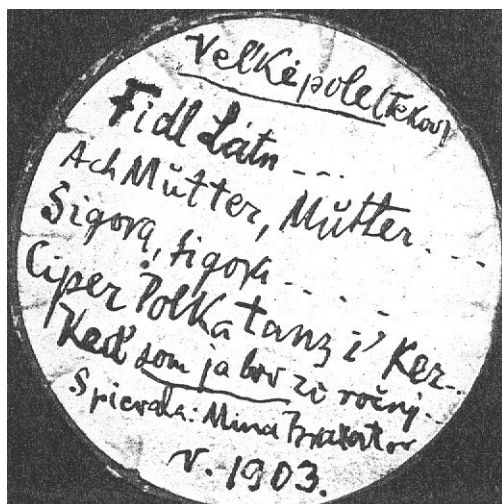 Veľképole (Tekov)
Fidl Látn ...
Ach Mütter, Mütter ...
Sigora, sigora ....
Ciper Polka tanz i' Kez.
Keď som ja bov zi ročný..
Spievala: Mina
v. 1903.